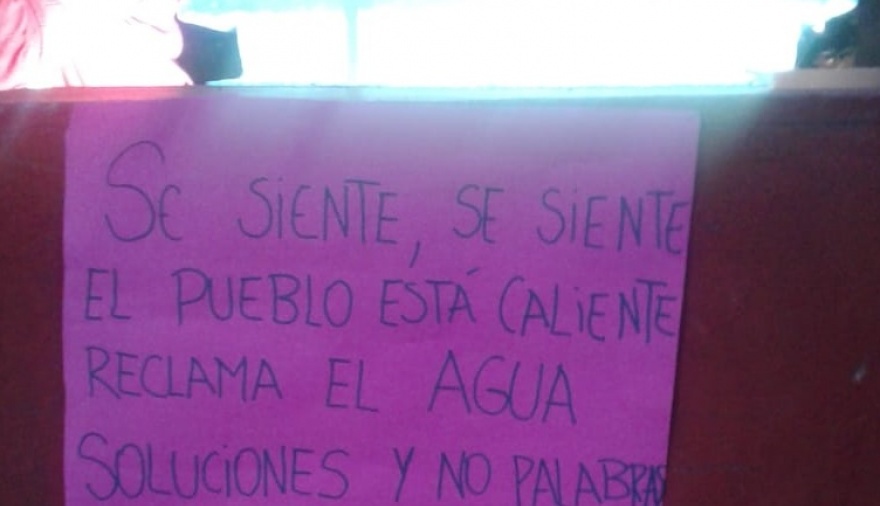 SE SIENTE, SE SIENTE
EL PUEBLO ESTÁ CALIENTE
RECLAMA EL AGUA
SOLUCIONES Y NO PALABRAS